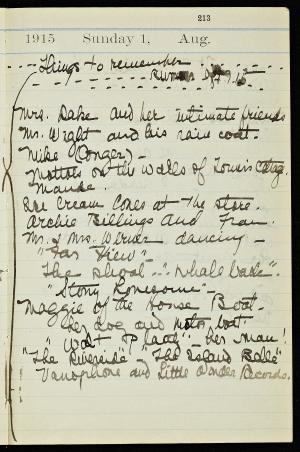 213
1915 Sunday 1, Aug.
Things to remember
Mrs. Dake and her intimate friends
Mr. Wight and his rain coat.
Mike (Conger) -
Mottoes on the walls of Louis Cottag.
Ice Cream Cones at the store.
Archie Billings and Fran.
Mr. & Mrs. Werner dancing -
"Far View"
The shoal - "Whale back".
"Stony Lonesome" -
Maggie of the House Boat -
her dog and motor boat.
"Walt" - her man!
"The Riverside" - "The Island Belle"
Vanophone and Little Wonder Records.